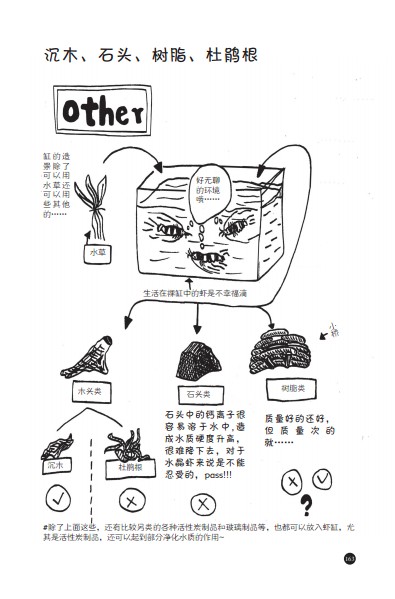 沉木、石头、树脂、杜鹃根
Other
缸的造
景除了
可以用
水草还
可以用
些其他
的……
水草
好无聊
的环境
唷……
生活在裸缸中的虾是不幸福滴
小桥
木头类
石头类
树脂类
石头中的钙离子很
容易溶于水中,造
成水质硬度升高,
很难降下去，对于
水晶虾来说是不能
忍受的，pass!!!
质量好的还好,
但质量次的
就……
沉木
杜鹃根
?
#除了上面这些，还有比较另类的各种活性炭制品和玻璃制品等，也都可以放入虾缸，尤
其是活性炭制品，还可以起到部分净化水质的作用~
163